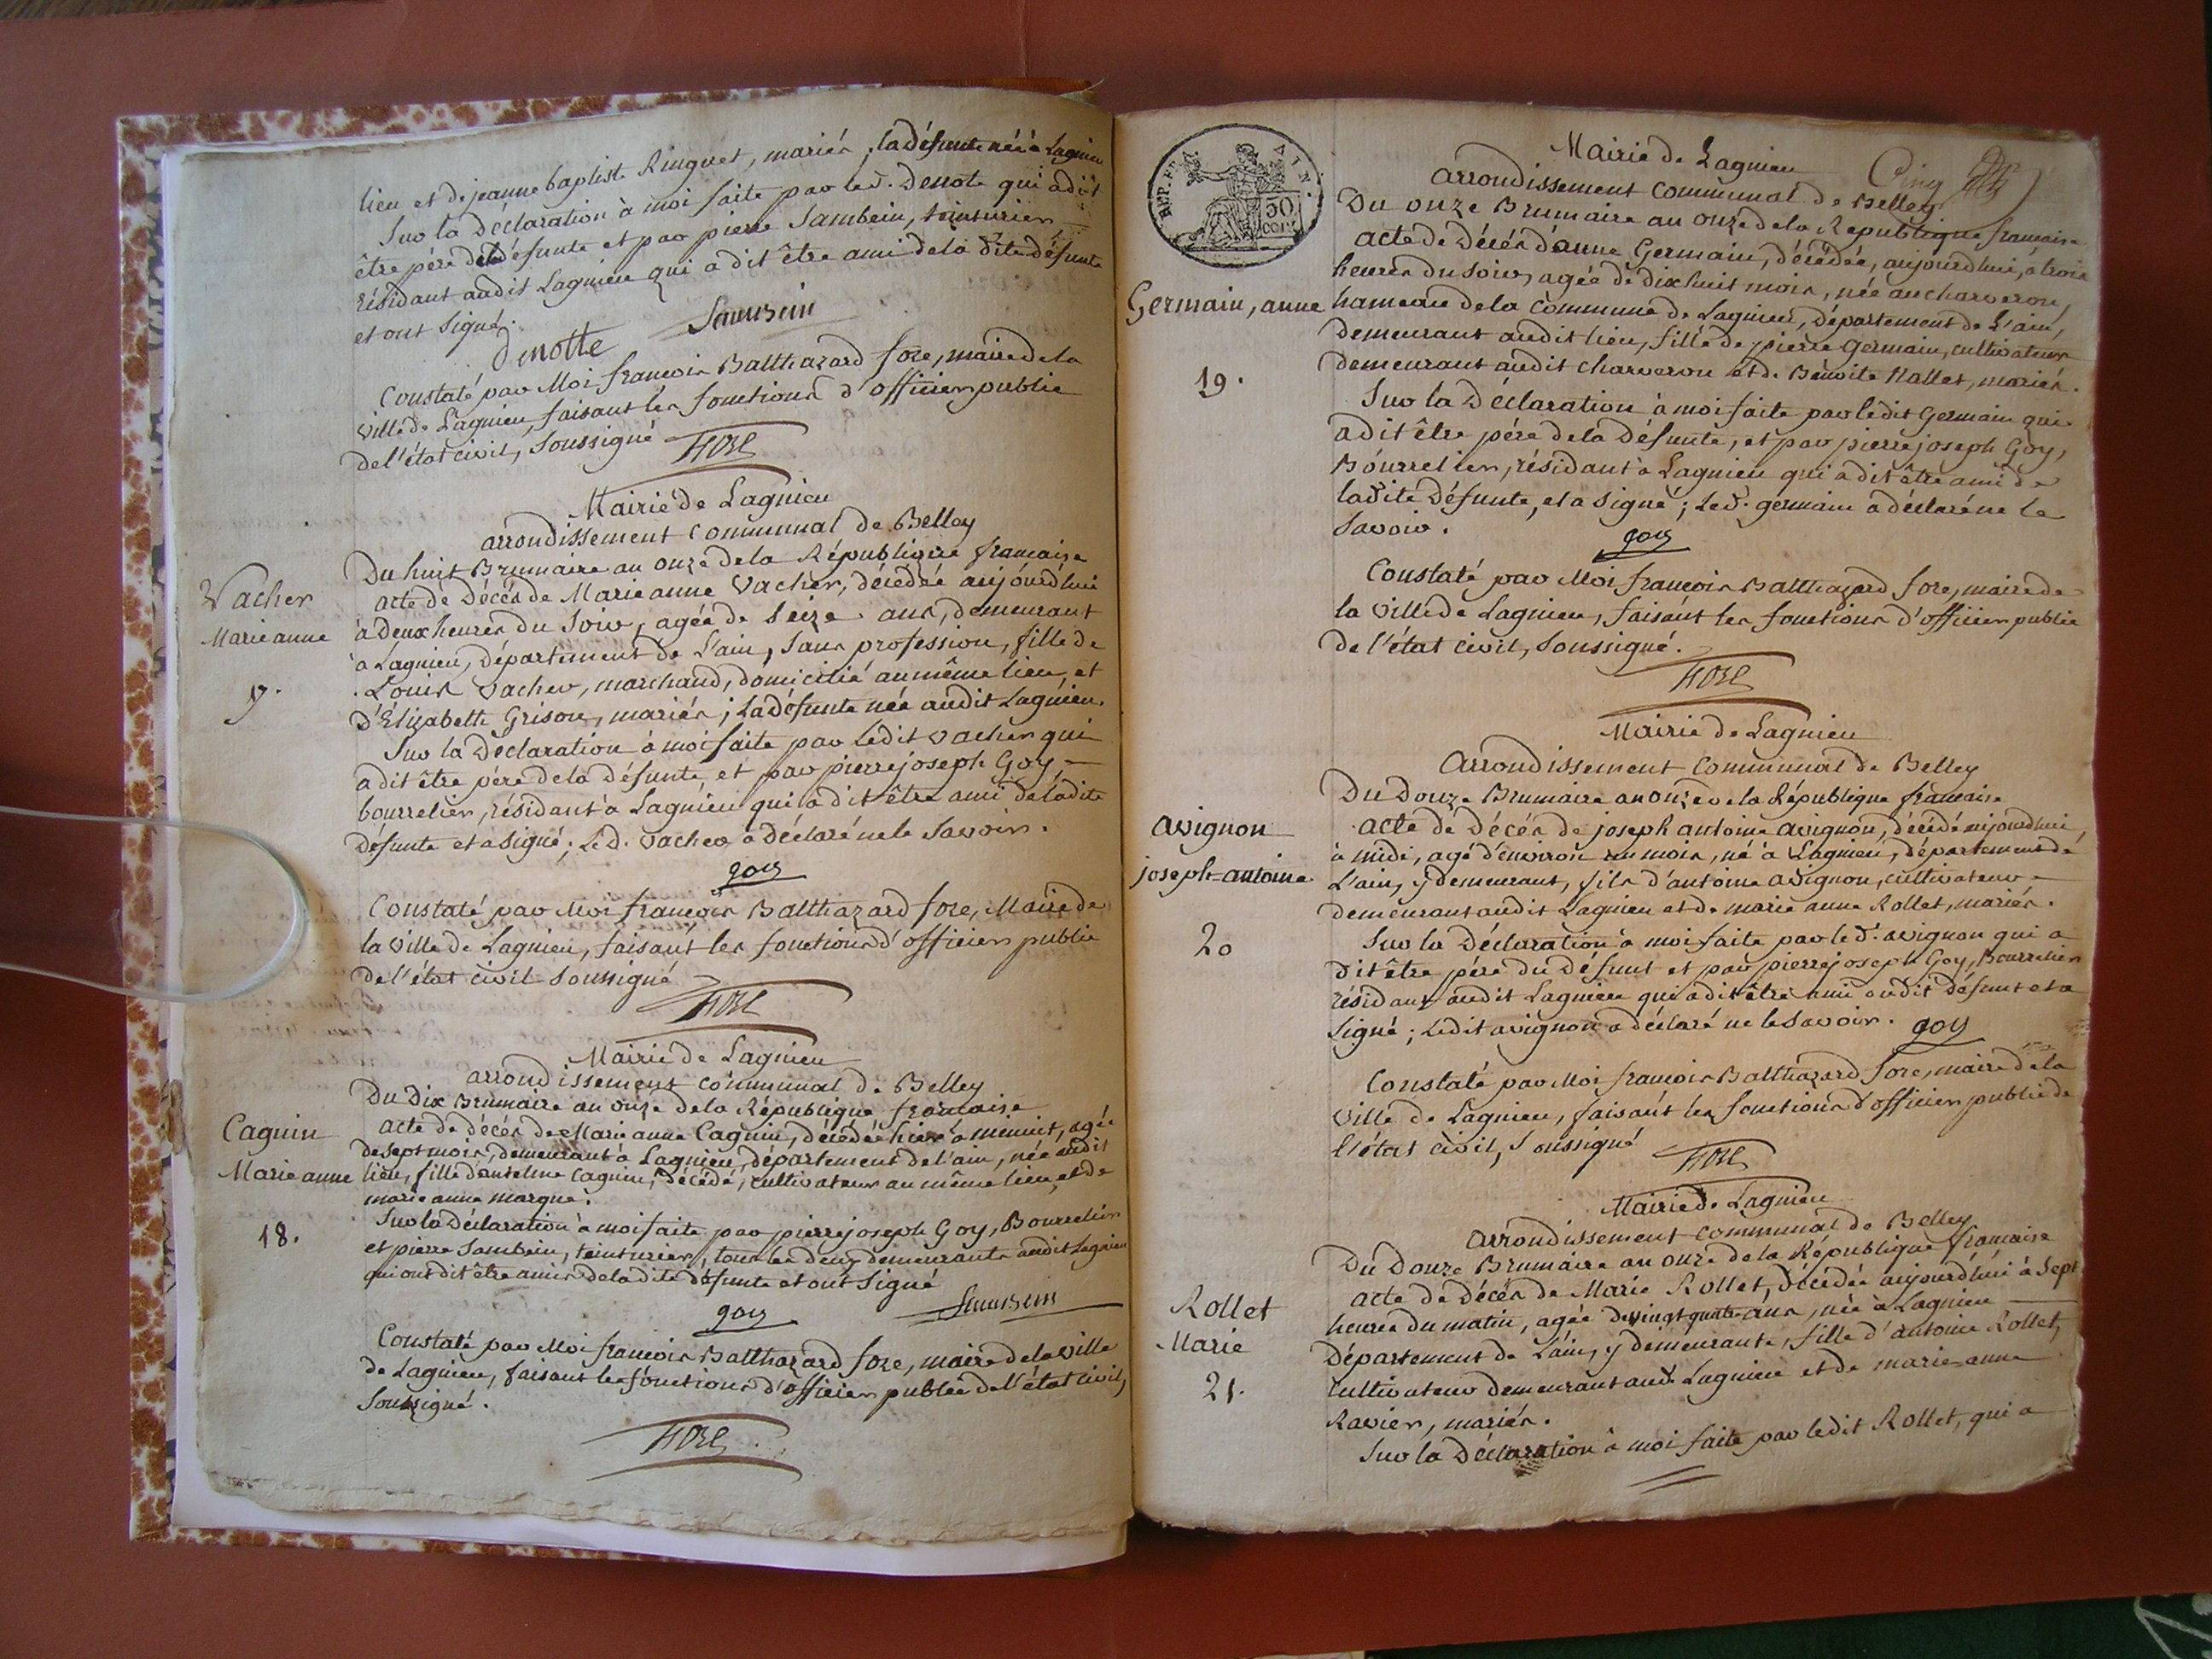 lieu et de jeanne baptiste Ringuet, mariés, la défunte née à Lagnieu
Sur la déclaration à moi faite par led. Denote qui a dit
être père de la défunte et par pierre Sambein, teinturier
résidant audit Lagnieu qui a dit être ami de la dite défunte
et ont signé.
Denotte Sambein
Constaté par Moi françois Balthazard fore, maire de la
ville de Lagnieu, faisant les fonctions d'officier public
de l'état civil, soussigné
FORE
Mairie de Lagnieu
arrondissement communal de Belley
Du huit Brumaire an onze de la République française
Vacher
Marie anne
17.
acte de Décès de Marie anne Vacher, décédée aujourd'hui
à deux heures du soir, agée de seize ans, demeurant
à Lagnieu, département de L'ain, sans profession, fille de
Louis Vacher, marchand, domicilié au même lieu, et
d'Élizabeth Grison, mariés; La défunte née audit Lagnieu.
Sur la Déclaration à moi faite par ledit vacher qui
a dit être père de la défunte et par pierre joseph Goy
bourrelier, résidant à Lagnieu qui a dit être ami de ladite
défunte et a signé; Le d. vacher a déclaré ne le savoir.
goy
Constaté par Moi françois Balthazard fore, Maire de
la ville de Lagnieu, faisant les fonctions d'officier public
de l'état civil soussigné
FORE
Mairie de Lagnieu
arrondissement communal de Belley
Du Dix Brumaire an onze de la République française
Caguin
Marie anne
18.
acte de décès de Marie anne Caguin, décédée hier à minuit, agée
de sept mois, demeurant à Lagnieu, département de l'ain, née audit
lieu, fille d'anselme Caguin, décédé, cultivateur au même lieu, et de
marie anne marque.
Sur la déclaration à moi faite par pierre joseph Goy, Bourrelier
et pierre Sambein, teinturier, tous les deux demeurants audit Lagnieu
qui ont dit être amis de la dite défunte et ont signé
goy Sambein
Constaté par Moi françois Balthazard fore, maire de la ville
de Lagnieu, faisant les fonctions d'officier public de l'état civil,
soussigné.
FORE
REP. FRA.
50
CENT.
Mairie de Lagnieu
Cinq
arrondissement communal de Belley
Du onze Brumaire an onze de la République française
Germain, anne
19.
acte de Décès d'anne Germain, décédée, aujourd'hui, à trois
heures du soir, agée de dix huit mois, née au charveron,
hameau de la commune de Lagnieu, département de L'ain,
demeurant audit lieu, fille de pierre Germain, cultivateur
demeurant audit charveron et de Benoite Nallet, mariés.
Sur la Déclaration à moi faite par ledit Germain qui
a dit être père de la Défunte, et par pierre joseph Goy,
Bourrelier, résidant à Lagnieu qui a dit être ami de
ladite défunte, et a signé; Le d. germain a déclaré ne le
savoir.
goy
Constaté par Moi françois Balthazard fore, maire de
la ville de Lagnieu, faisant les fonctions d'officier public
de l'état civil, soussigné.
FORE
Mairie de Lagnieu
Arrondissement communal de Belley
Du Douze Brumaire an onze de la République française
avignon
joseph-antoine
20
acte de Décès de joseph antoine avignon, décédé aujourd'hui,
à midi, agé d'environ un mois, né à Lagnieu, département de
L'ain, y demeurant, fils d'antoine avignon, cultivateur
demeurant audit Lagnieu et de marie anne Rollet, mariés.
Sur la Déclaration à moi faite par le d. avignon qui a
dit être père du défunt et par pierre joseph Goy, Bourrelier
résidant audit Lagnieu qui a dit être ami audit défunt et a
signé; Ledit avignon a déclaré ne le savoir. goy
Constaté par Moi françois Balthazard fore, maire de la
ville de Lagnieu, faisant les fonctions d'officier public de
l'état civil, soussigné
FORE
Mairie de Lagnieu
arrondissement communal de Belley
Du Douze Brumaire an onze de la République française
Rollet
Marie
21.
acte de Décès de Marie Rollet, décédée aujourd'hui à sept
heures du matin, agée de vingt quatre ans, née à Lagnieu
Département de L'ain, y demeurante, fille d'antoine Rollet,
cultivateur demeurant aud. Lagnieu et de marie anne
Ravier, mariés.
Sur la Déclaration à moi faite par ledit Rollet, qui a